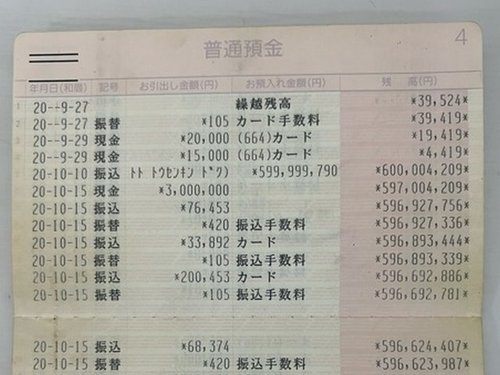 普通預金 4
年月日(和暦) 記号 お引出し金額(円) お預入れ金額(円) 残 高(円)
1 20--9-27 繰越残高 *39,524*
2 20--9-27 振替 *105 カード手数料 *39,419
3 20--9-29 現金 *20,000 (664)カード *19,419
20--9-29 現金 *15,000 (664)カード *4,419
20-10-10 振込 トト トウセンキン *599,999,790 *600,004,209*
20-10-15 現金 *3,000,000 *597,004,209*
20-10-15 振込 *76,453 *596,927,756
20-10-15 振替 *420 振込手数料 *596,927,336
20-10-15 振込 *33,892 カード *596,893,444
20-10-15 振替 *105 振込手数料 *596,893,339
20-10-15 振込 *200,453 カード *596,692,886
20-10-15 振替 *105 振込手数料 *596,692,781*
20-10-15 振込 *68,374 *596,624,407*
20-10-15 振替 *420 振込手数料 *596,623,987